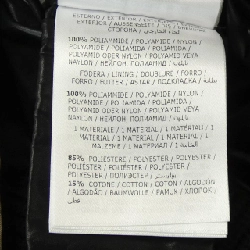 ESTERNO / EXTERIOR /
EXTERIOR / AUSSENSEITE /
СТОРОНА /
100% POLIAMMIDE / POLYAMIDE / NYLON /
POLYAMIDE / POLIAMIDA / POLIAMIDA /
POLYAMID ODER NYLON / POLYAMID VEYA
NAYLON / НЕЙЛОН ПОЛИАМИД /
FODERA / LINING / DOUBLURE / FORRO /
FORRO / FUTTER / ASTAR /
100% POLIAMMIDE / POLYAMIDE / NYLON /
POLYAMIDE / POLIAMIDA / POLIAMIDA /
POLYAMID ODER NYLON / POLYAMID VEYA
NAYLON / НЕЙЛОН ПОЛИАМИД /
1 MATERIALE / 1 MATERIAL / 1 MATERIAU / 1
MATERIAL / 1 MATERIAL / 1 MATERIAL / 1
MALZEME / 1 МАТЕРИАЛ /
85% POLIESTERE / POLYESTER / POLYESTER /
POLIESTER / POLIESTER / POLYESTER /
POLYESTER / ПОЛИЭСТЕР /
15% COTONE / COTTON / COTON / ALGODON /
ALGODÃO / BAUMWOLLE / PAMUK / ХЛОПОК /
قطن